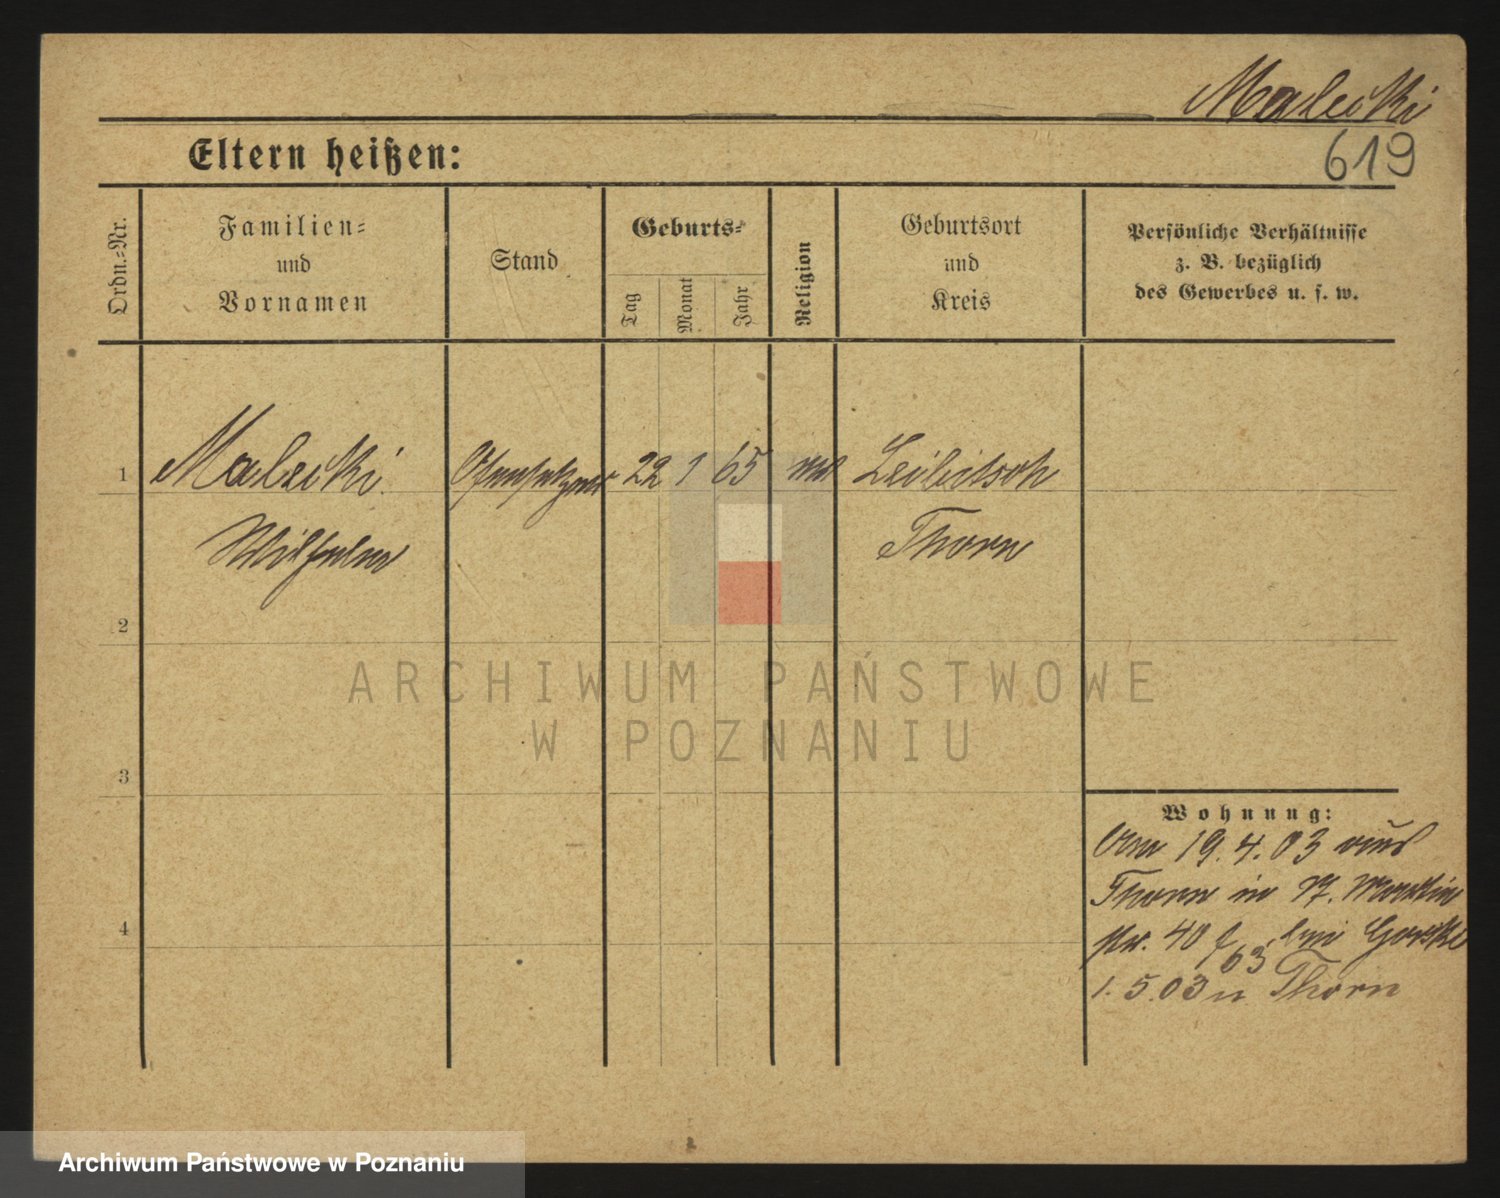 Malecki
619
Eltern heißen:
Ordn.-Nr.
Familien-
und
Vornamen
Stand
Geburts-
Tag
Monat
Jahr
Religion
Geburtsort
und
Kreis
Persönliche Verhältnisse
z. B. bezüglich
des Gewerbes u. s. w.
1 Malecki Ofensetzer 22 1 65 Leibitsch
Wilhelm Thorn
2
3
4
ARCHIWUM PAŃSTWOWE
W POZNANIU
Wohnung:
Am 19. 4. 03 aus
Thorn in St. Martin
str. 40 bei Gorski
63
1. 5. 03 n. Thorn
Archiwum Państwowe w Poznaniu